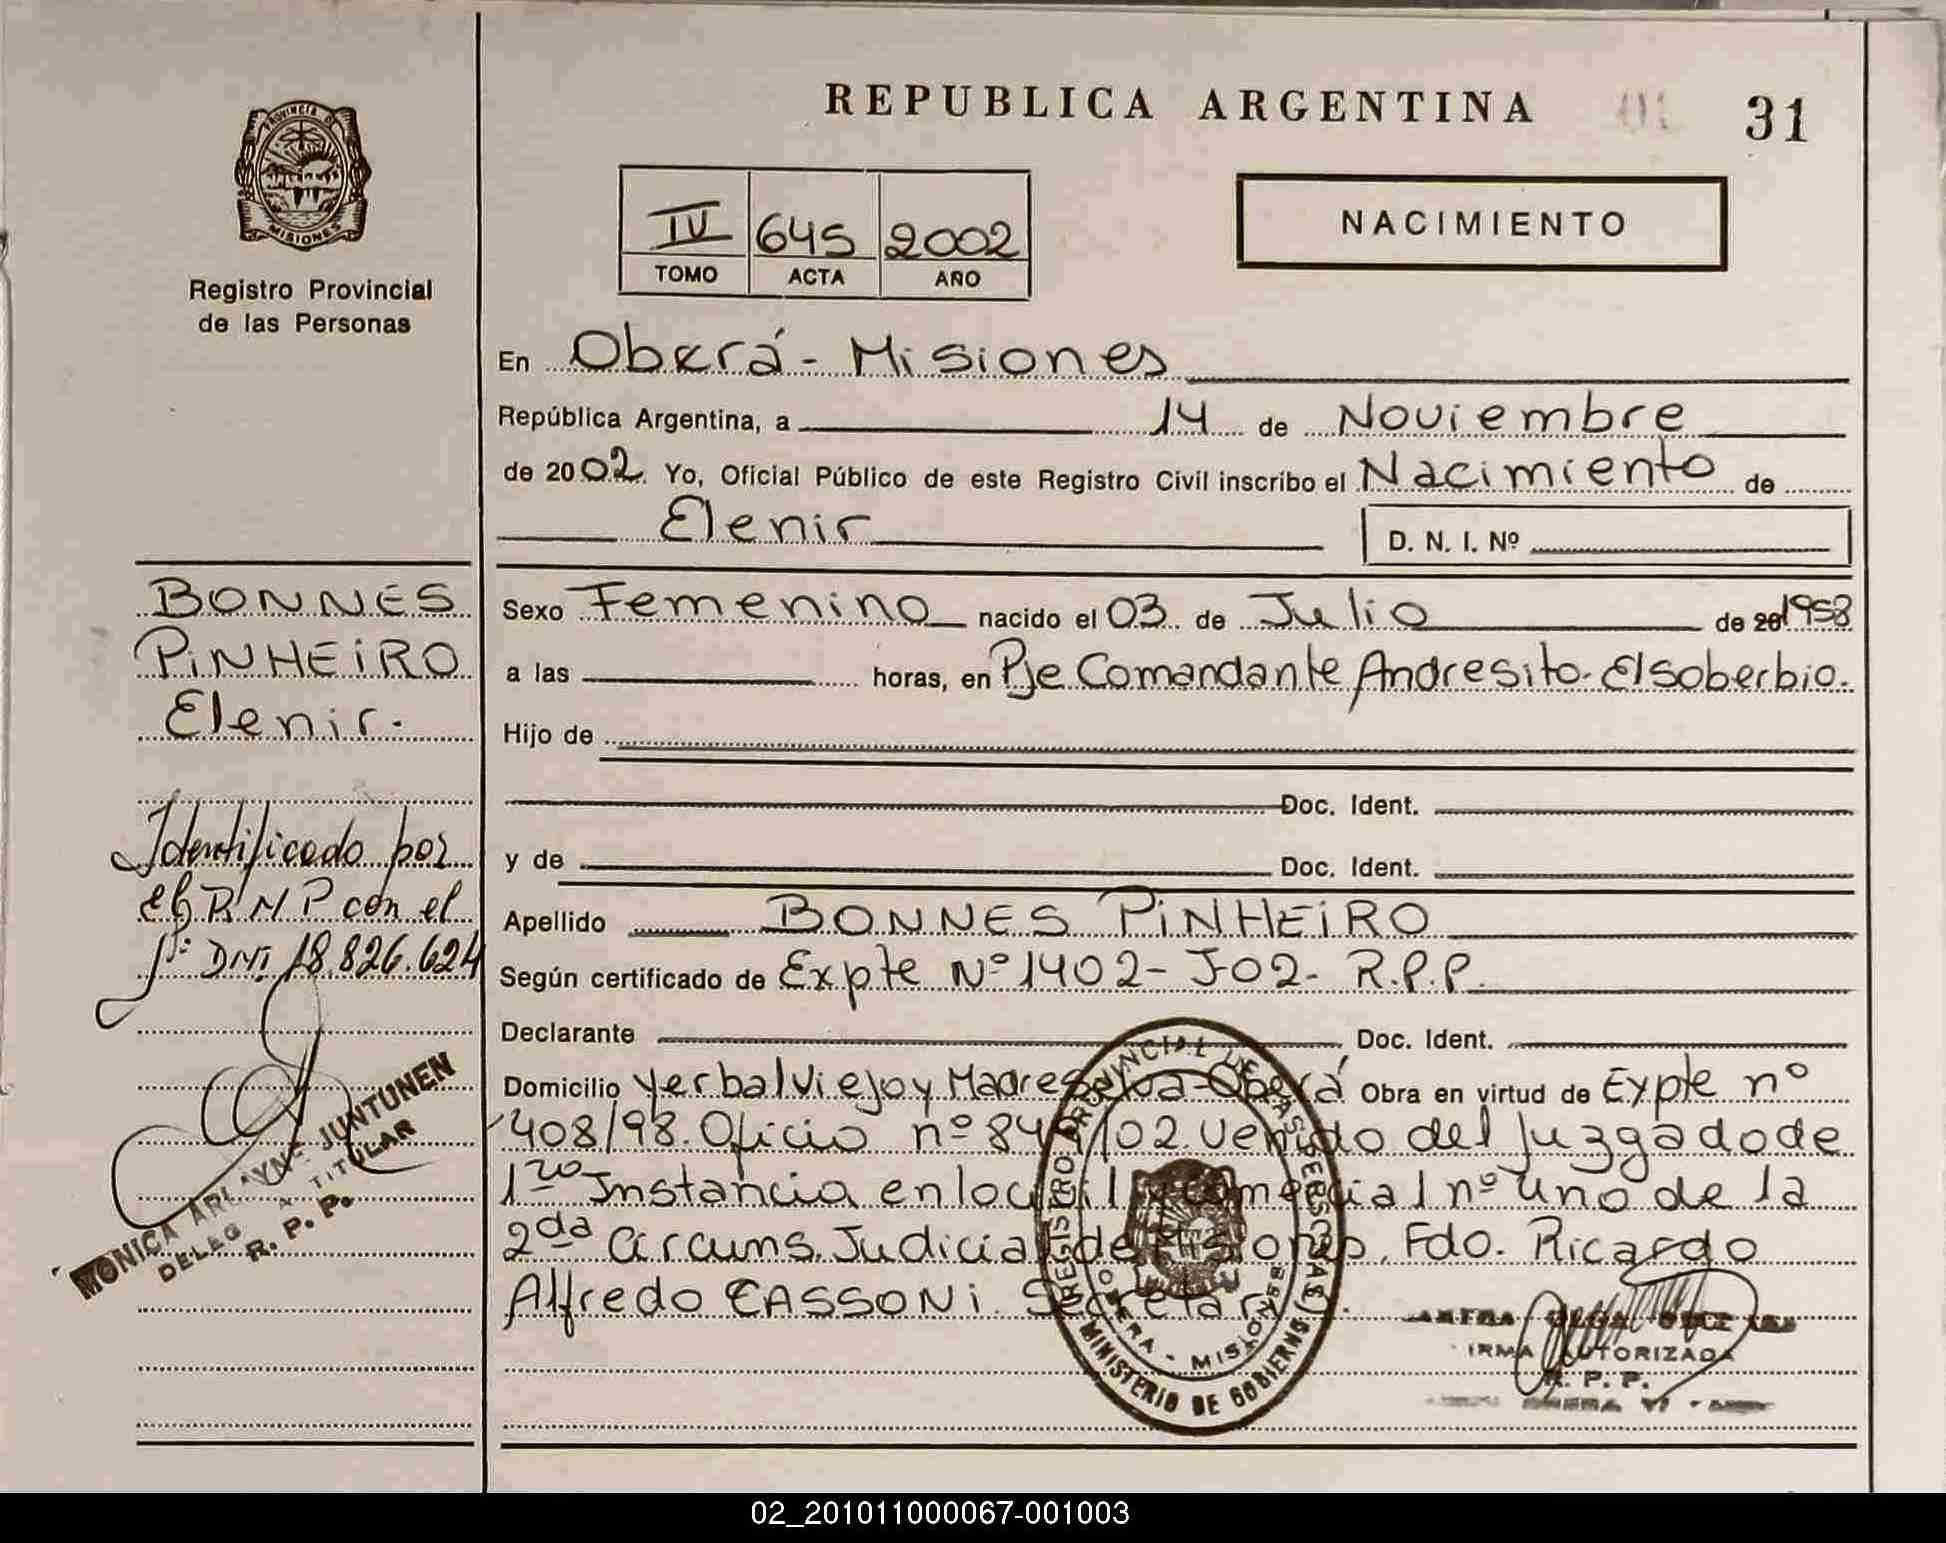 REPUBLICA ARGENTINA
31
PROVINCIA DE
MISIONES
Registro Provincial
de las Personas
IV 645 2002
TOMO ACTA AÑO
NACIMIENTO
En Oberá - Misiones
República Argentina, a 14 de Noviembre
de 2002. Yo, Oficial Público de este Registro Civil inscribo el Nacimiento de
Elenir D. N. I. Nº
BONNES
PiNHEiRO
Elenir.
Identificado por
el R N P con el
Nº: DNI 18.826.624
JUNTUNEN
MONICA
TITULAR
DELEG
R. P. P.
Sexo Femenino nacido el 03 de Julio de 20 1958
a las horas, en Pje Comandante Andresito. El soberbio.
Hijo de
Doc. Ident.
y de Doc. Ident.
Apellido BONNES PiNHEiRO
Según certificado de Expte Nº 1402- J-02- R.P.P.
Declarante Doc. Ident.
Domicilio Yerbal Viejo y Madreselva - Oberá Obra en virtud de Expte nº
408/98. Oficio nº 84 /02. Venido del Juzgado de
1ro Instancia en lo civil y comercial nº uno de la
2da Circuns. Judicial de Misiones, Fdo. Ricardo
Alfredo CASSONi. Secretario.
REGISTRO PROVINCIAL DE LAS PERSONAS
OBERA - MISIONES
MINISTERIO DE GOBIERNO
FIRMA AUTORIZADA
R. P. P.
02_201011000067-001003